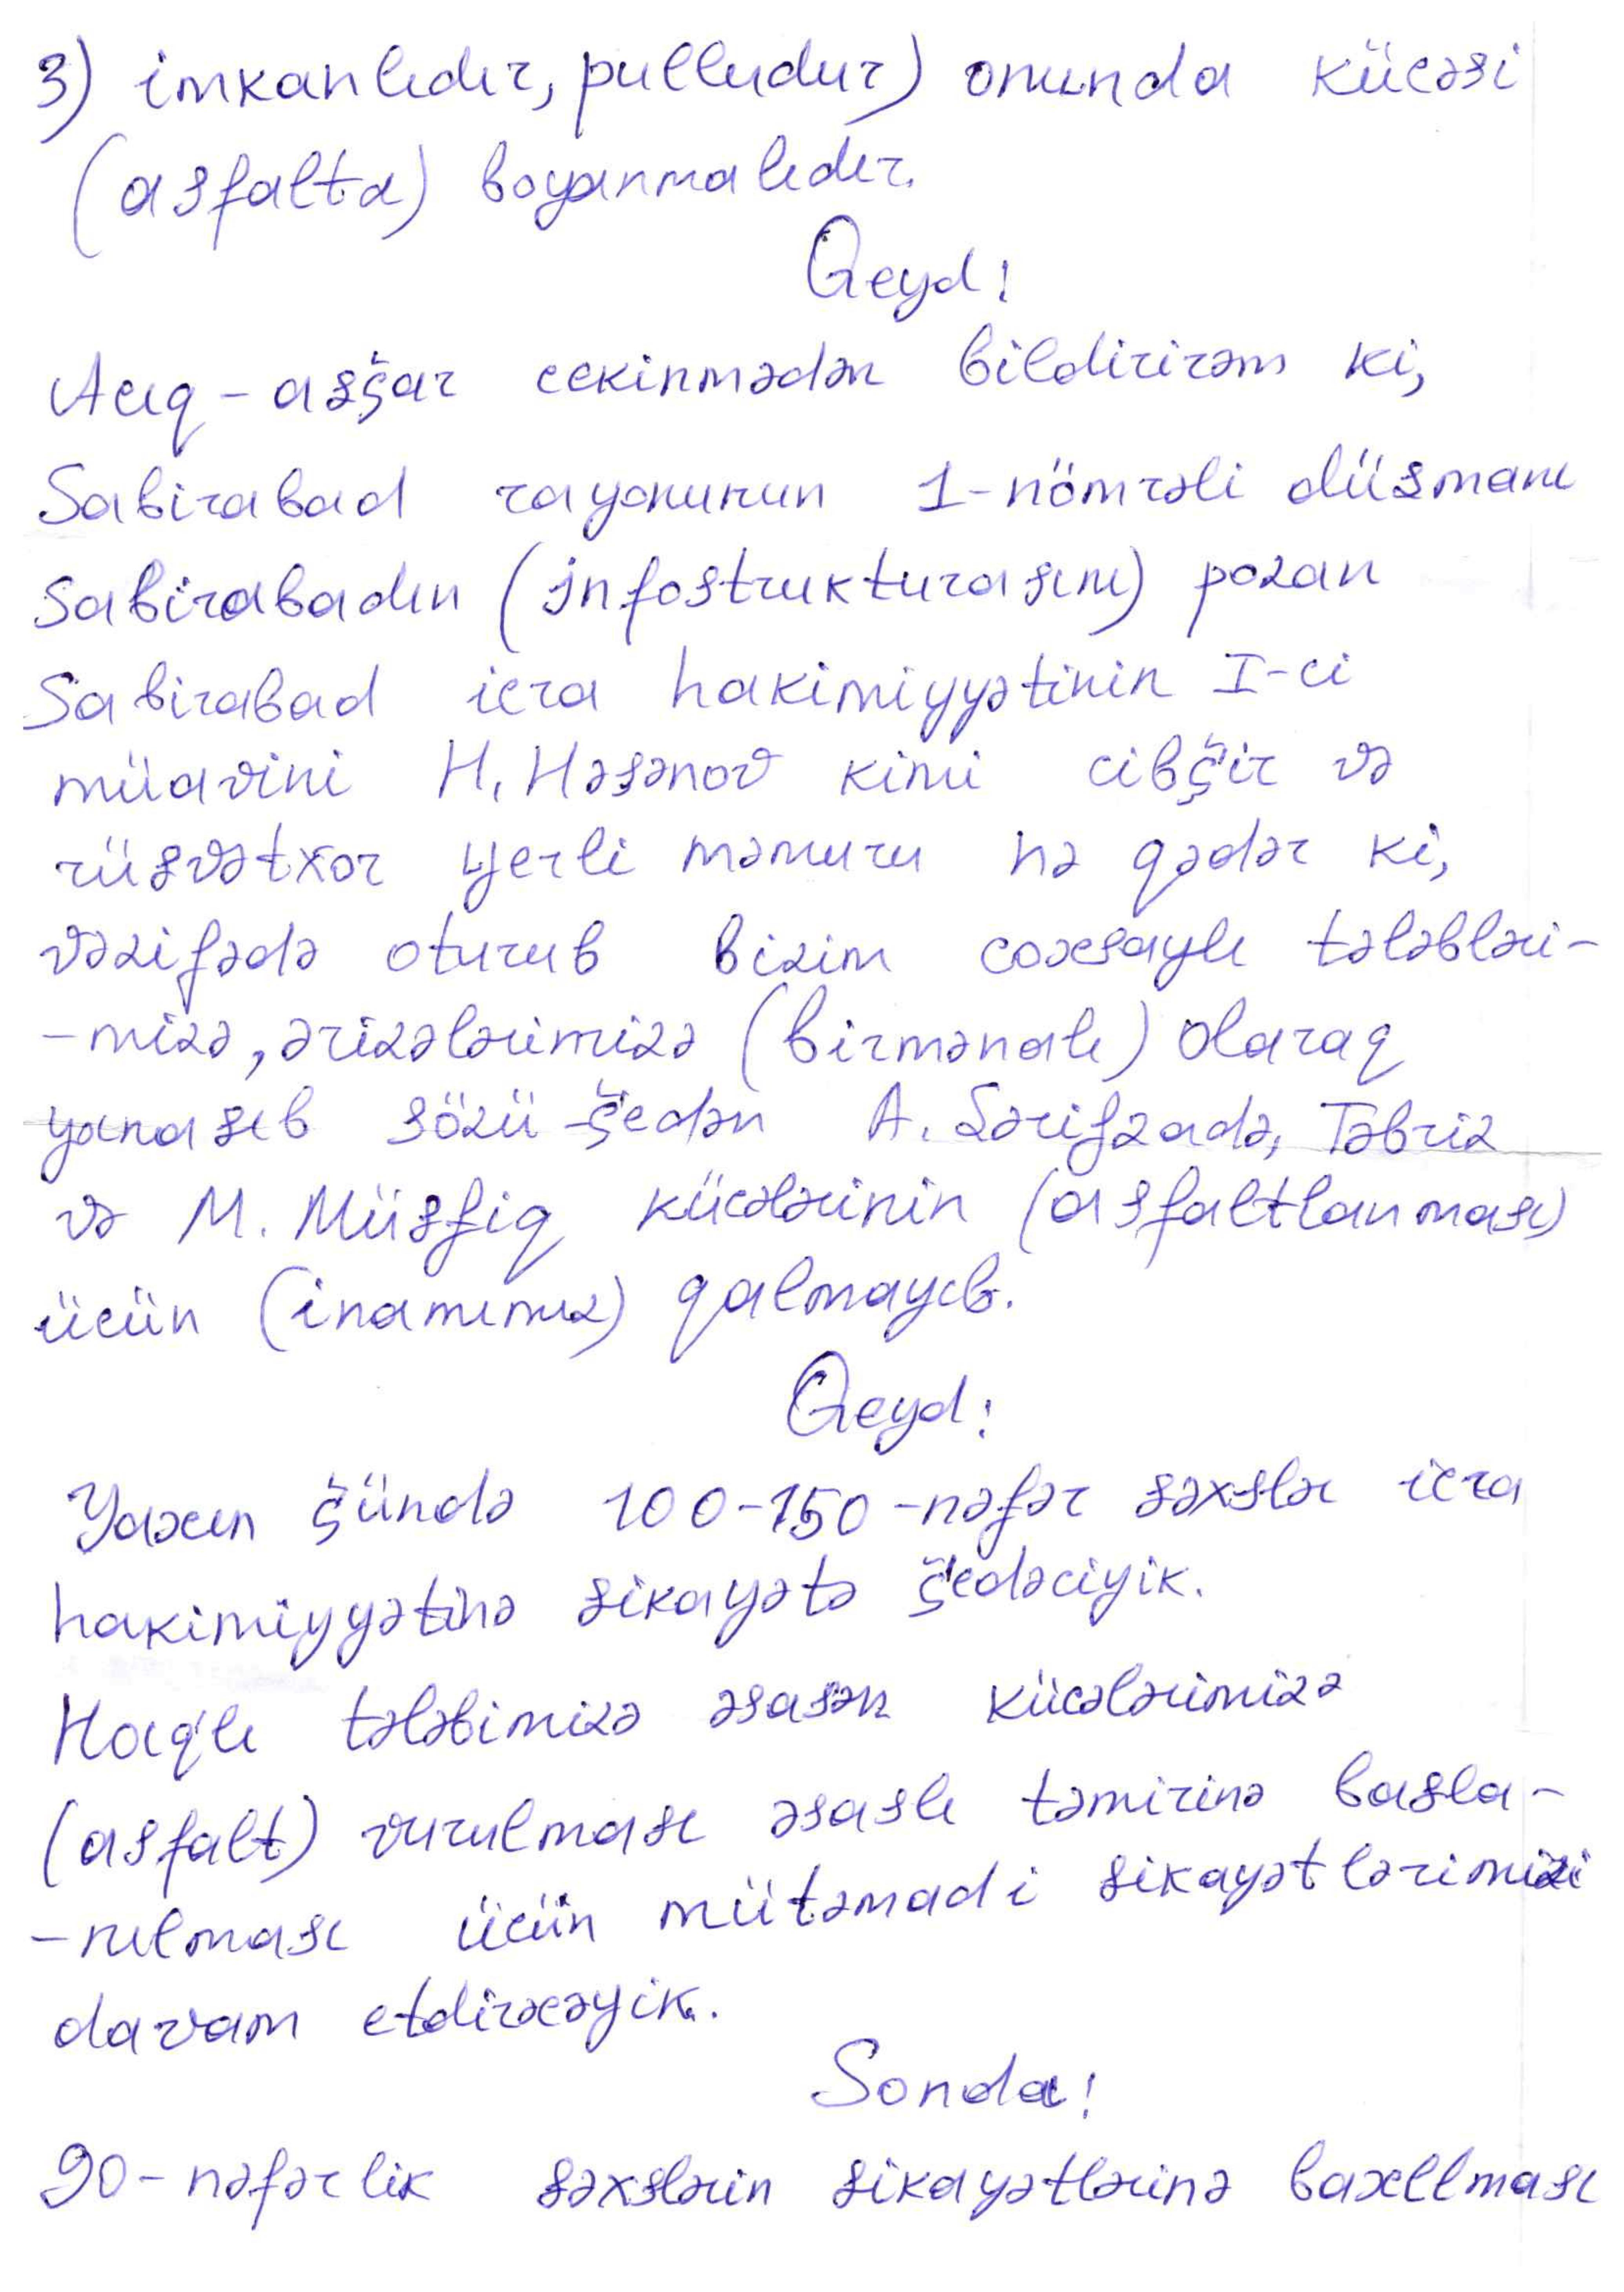 3) imkanlıdır, pulludur) onunda kücəsi
(asfalta) boyanmalıdır.
Qeyd!
Acıq - aşgar cekinmədən bildirirəm ki,
Sabirabad rayonunun 1-nömrəli düşmanı
Sabirabadın (infostrukturasını) pozan
Sabirabad icra hakimiyyətinin I-ci
müavini H. Həsənov kimi cibgir və
rüşvətxor yerli məmuru nə qədər ki,
vəzifədə oturub bizim coxsaylı tələbləri-
-mizə, ərizələrimizə (birmənalı) olaraq
yanaşıb sözü-gedən A. Şərifzadə, Təbriz
və M. Müşfiq kücələrinin (asfaltlanması)
ücün (inamımız) qalmayıb.
Qeyd!
Yaxın gündə 100-150-nəfər şəxslər icra
hakimiyyətinə şikayətə gedəciyik.
Haqlı tələbimizə əsasən kücələrimizə
(asfalt) vurulması əsaslı təmirinə başla-
-nılması ücün mütəmadi şikayətlərimizi
davam etdirəcəyik.
Sonda!
90-nəfərlik şəxslərin şikayətlərinə baxıllması